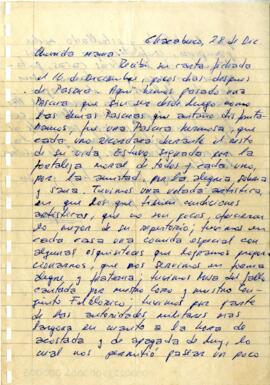 Chacabuco, 28 de Dic.
Querida mamá:
Recibí su carta fechada
el 16 de Diciembre, pocos días después
de Pascua. Aquí hemos pasado una
Pascua que sin ser desde luego como
las demás Pascuas que antaño disfrutá-
bamos, fue una Pascua hermosa, que
cada uno recordará durante el resto
de su vida. Estuvo signada por la
fortaleza moral de todos y cada uno,
por la amistad, por la alegría
y sana. Tuvimos una velada artística,
en que los que tienen condiciones
artísticas, que no son pocos, ofrecieron
lo mejor de su repertorio; tuvimos en
cada casa una comida especial con
algunas exquisiteces que logramos propor-
cionarnos, que nos servimos en forma
alegre, y fraterna; tuvimos misa del gallo
cantada por nuestro coro y nuestro con-
junto Folklórico; tuvimos por parte
de las autoridades militares más
largona en cuanto a la hora de
acostada y de apagada de luz, lo
cual nos permitió pasar un poco